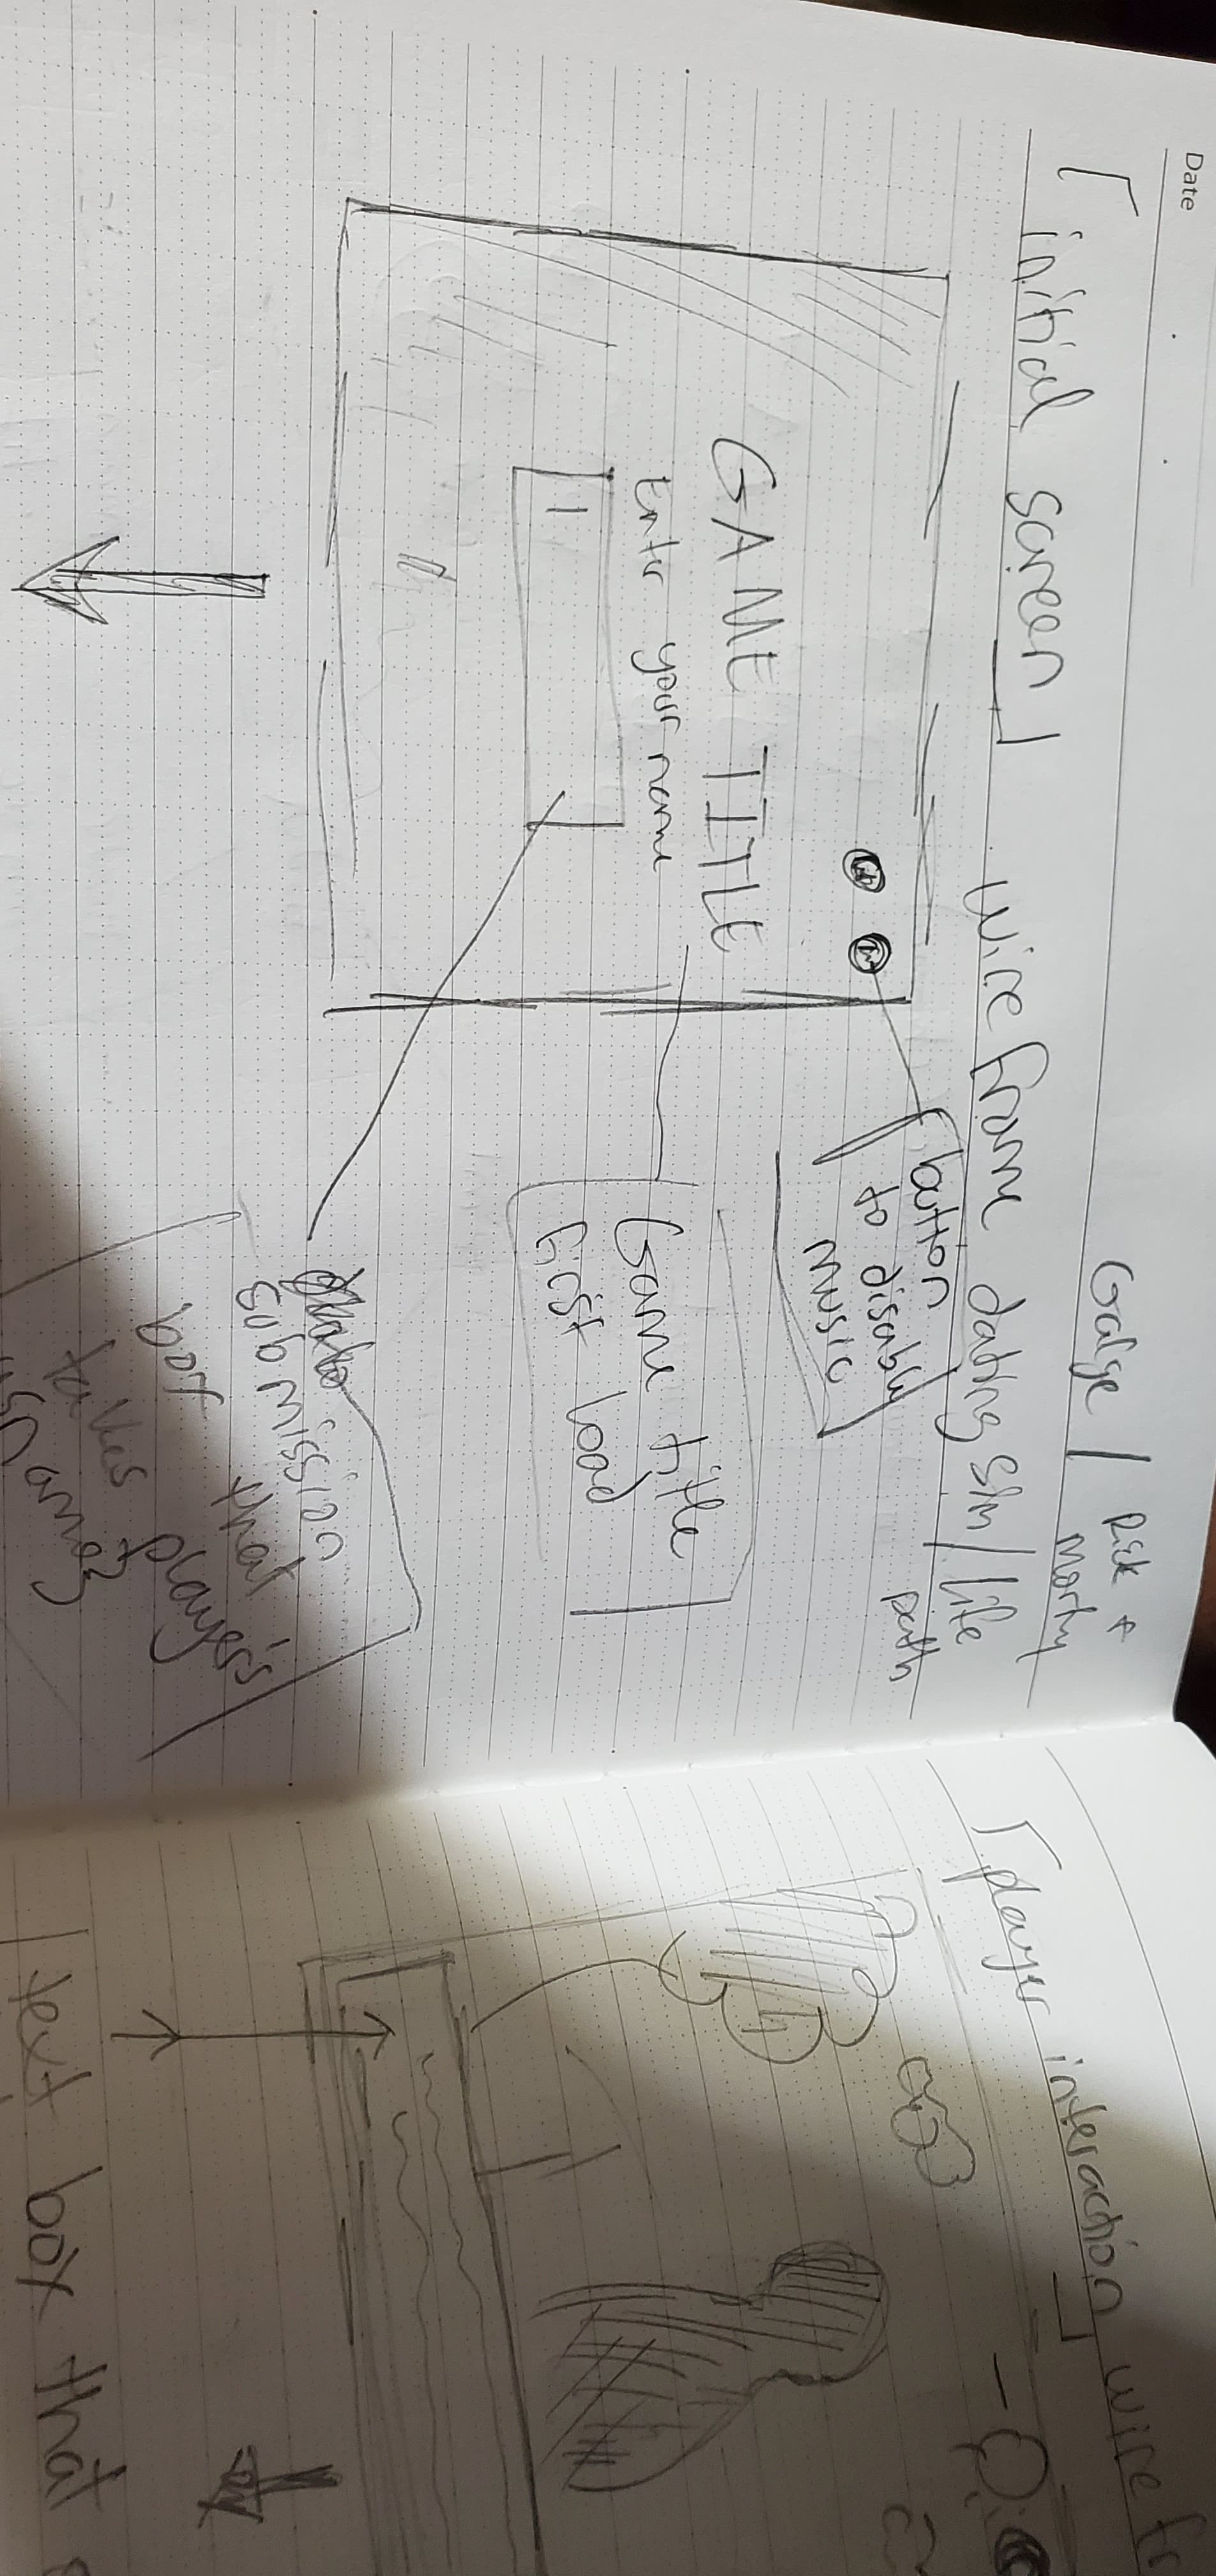 Date
Galge / Rick +
Morty
「initial screen」
wireframe dating sim / life
path
button
to disably
music
GAME TITLE
Enter your name
Game title
first load
submission
box that
takes player's
「player interaction」 wire
text box that